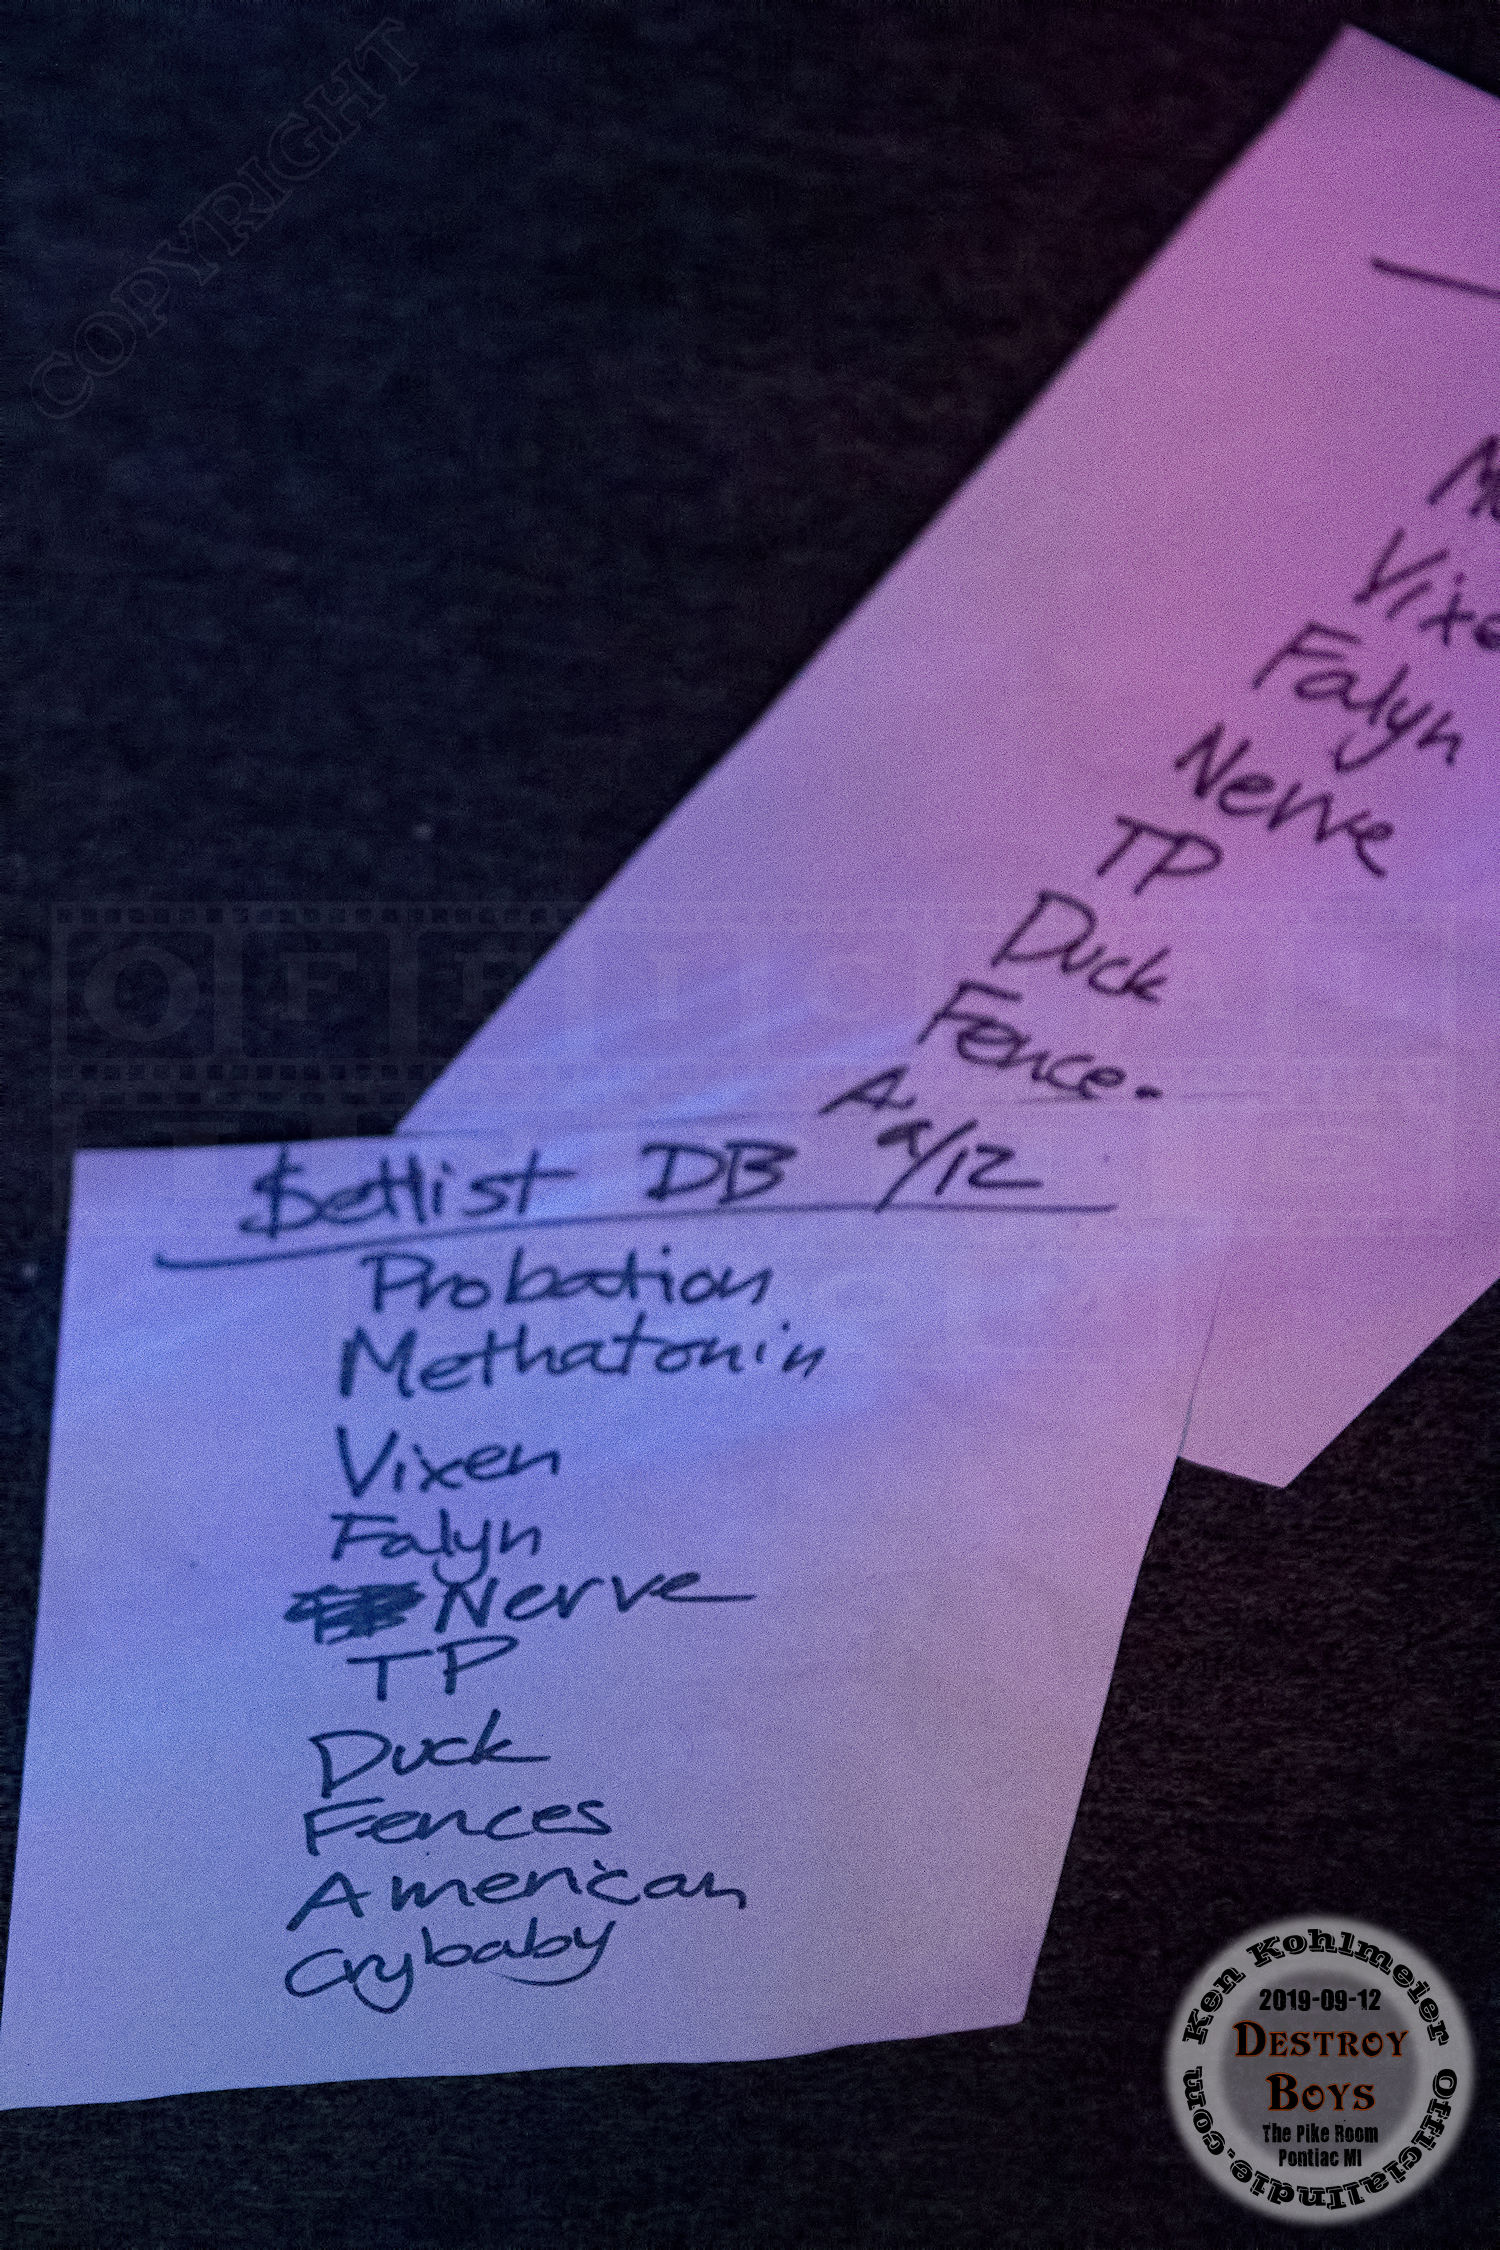 COPYRIGHT
Vixe
Falyn
Nerve
TP
Duck
Fence
A
$etlist DB 9/12
Probation
Methatonin
Vixen
Falyn
Nerve
TP
Duck
Fences
American
Crybaby
Ken Kohlmeier OfficialIndie.com
2019-09-12
DESTROY
BOYS
The Pike Room
Pontiac MI